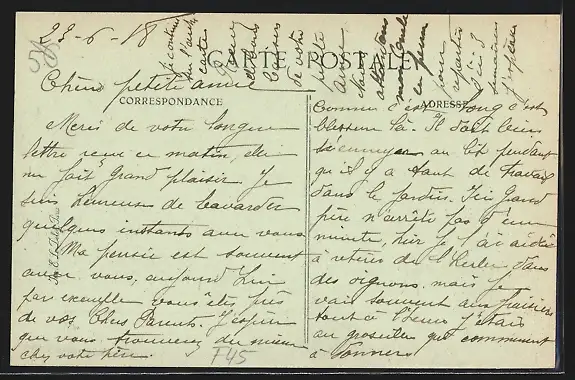 23-6-18
CARTE POSTALE
Chère petite amie
CORRESPONDANCE
ADRESSE
Merci de votre longue
lettre reçue ce matin, elle
m'a fait grand plaisir. Je
suis heureuse de bavarder
quelques instants avec vous
Ma pensée est souvent
avec vous, aujourd'hui
par exemple vous êtes près
de vos Chers Parents. J'espère
que vous trouverez du mieux
chez votre père.
Comme c'est long c'est
blessure là. Il doit bien
s'ennuyer au lit pendant
qu'il y a tant de travail
dans le jardin. Ici Grand
père n'arrête pas d'une
minute, hier je l'ai aidé
à retirer de l'herbe dans
des oignons, mais je
vais souvent aux fraisiers
tout à l'heure j'étais
au groseiller qui commence
à donner
je continue
sur l'autre
carte
Bons
Baisers
de votre
petite
amie
pour
repartir
2 ou 3
semaines
j'espère
F45